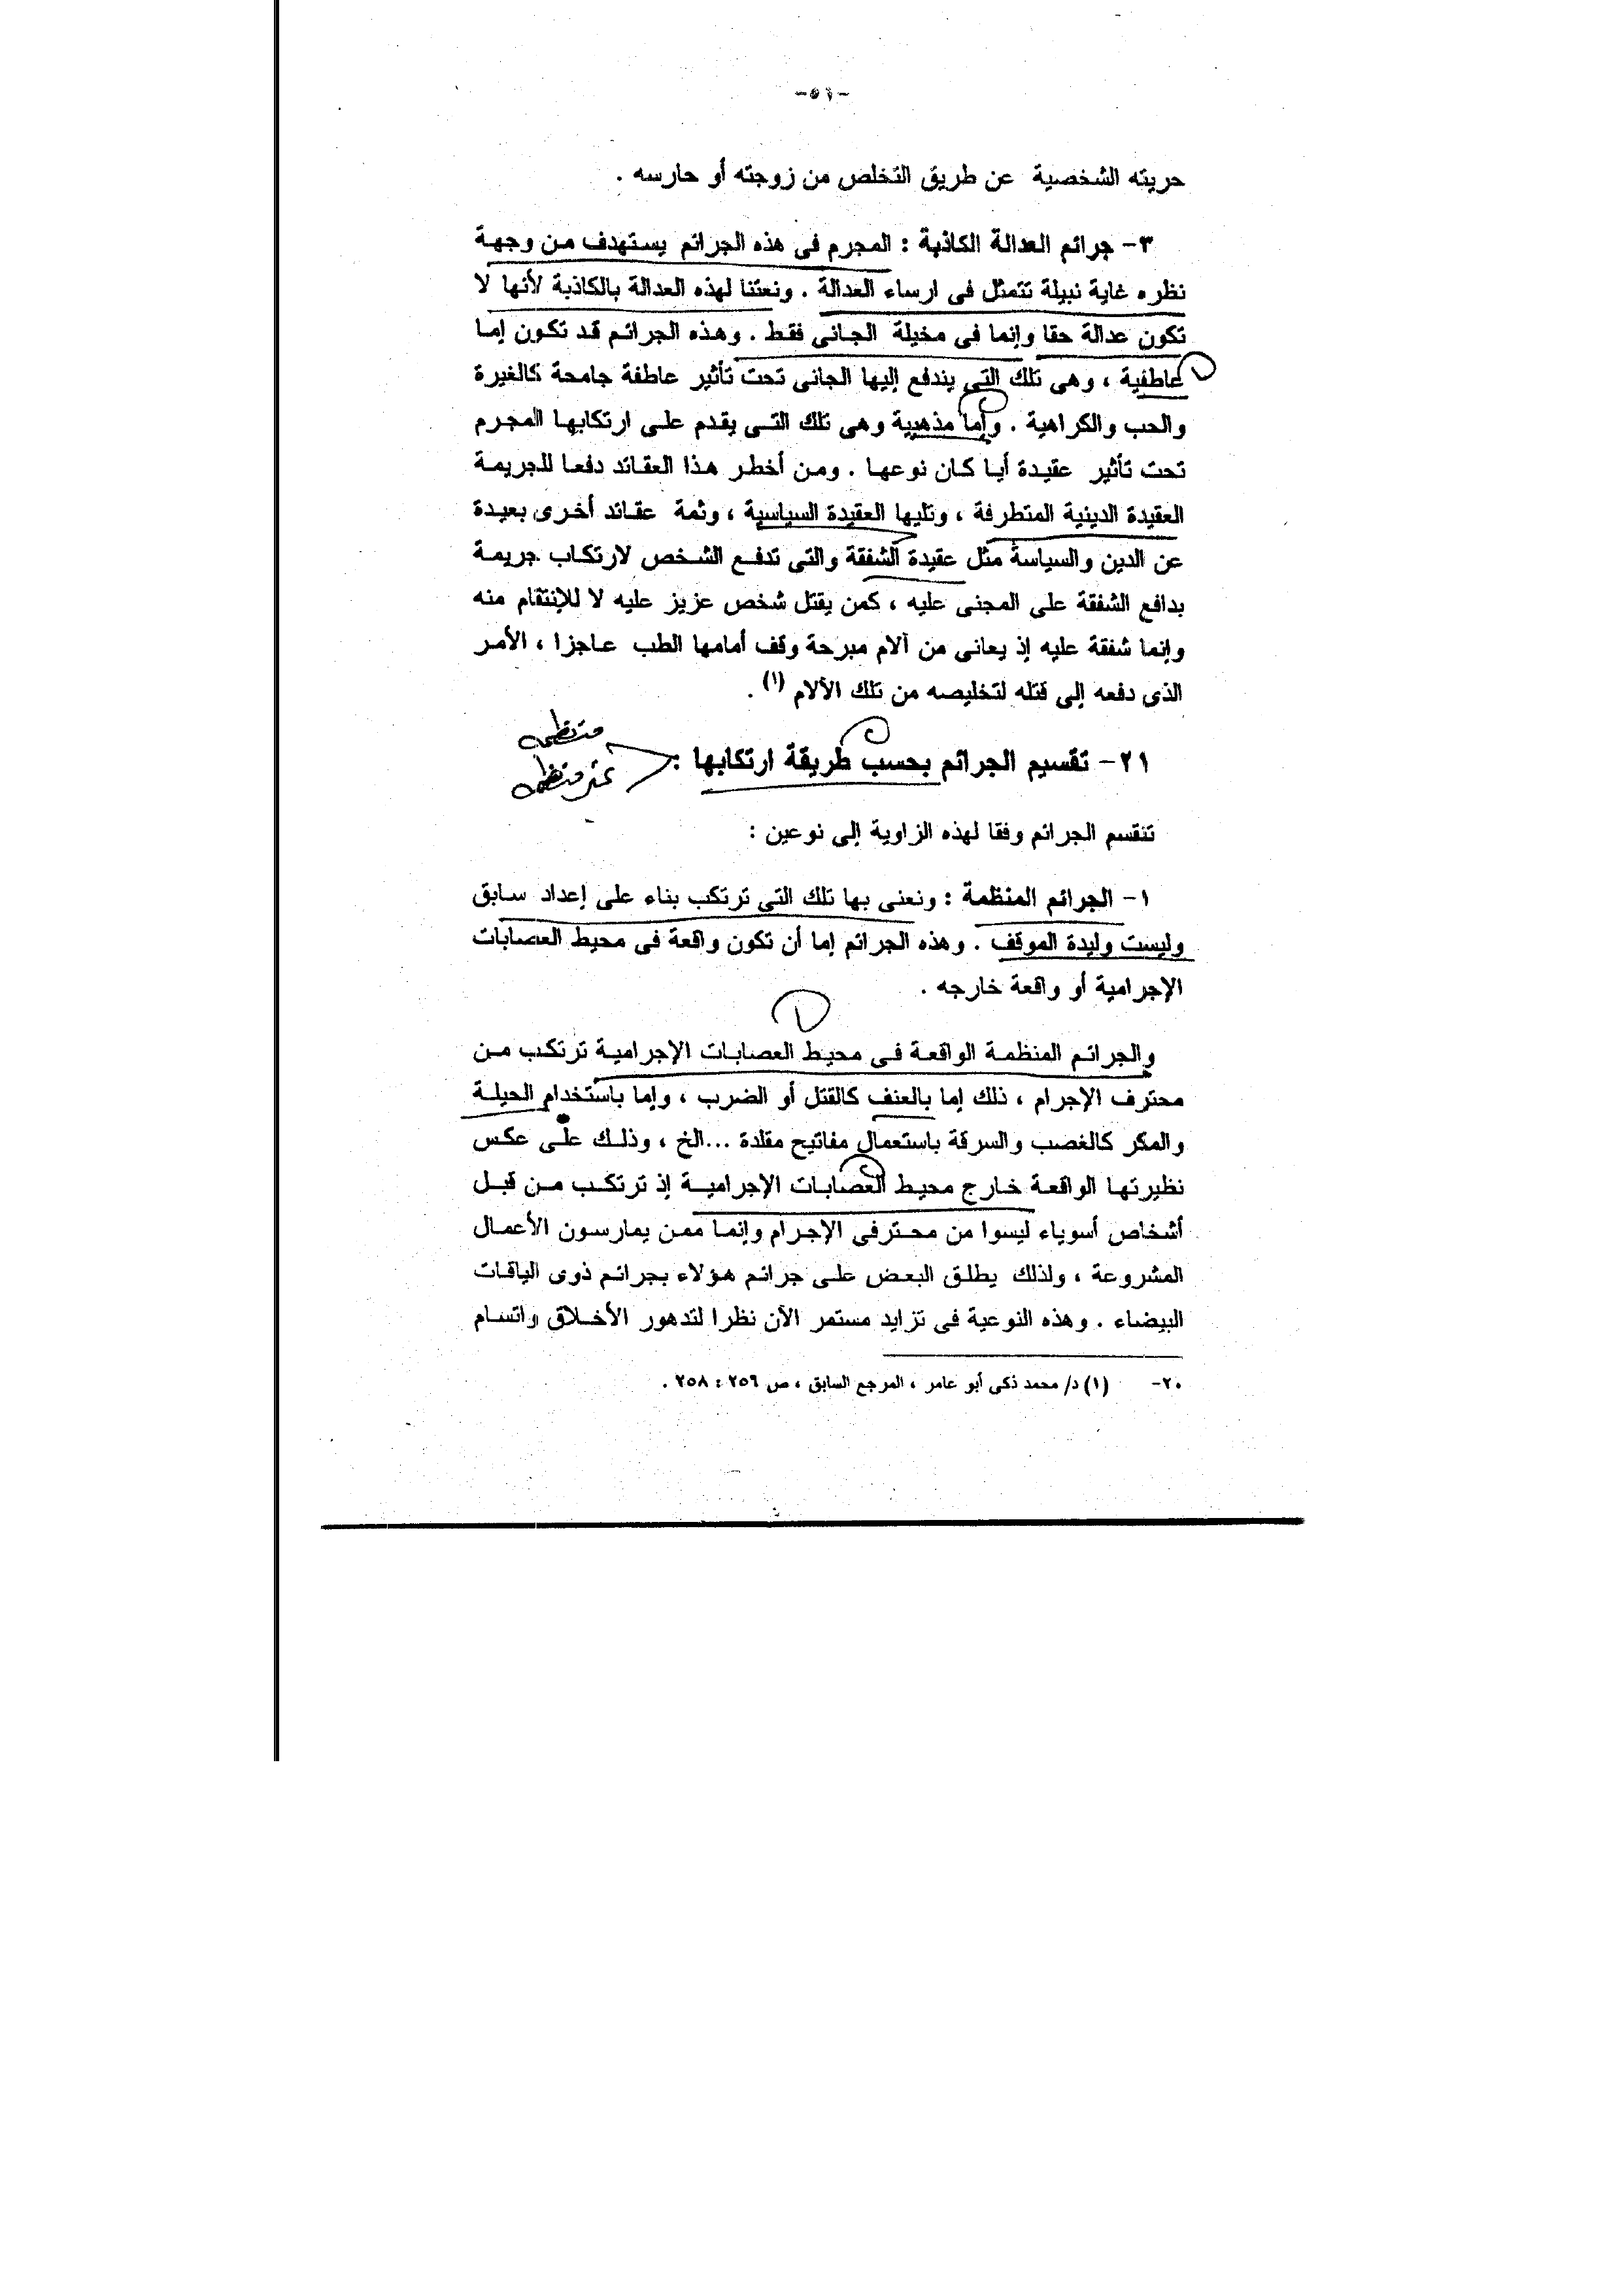 -٥١-
حريته الشخصية عن طريق التخلص من زوجته أو حارسه .
٣- جرائم العدالة الكاذبة : المجرم فى هذه الجرائم يستهدف من وجهة
نظره غاية نبيلة تتمثل فى ارساء العدالة . ونعتنا لهذه العدالة بالكاذبة لأنها لا
تكون عدالة حقا وإنما فى مخيلة الجانى فقط . وهذه الجرائم قد تكون إما
عاطفية ، وهى تلك التى يندفع إليها الجانى تحت تأثير عاطفة جامحة كالغيرة
والحب والكراهية . وإما مذهبية وهى تلك التى يقدم على ارتكابها المجرم
تحت تأثير عقيدة أيا كان نوعها . ومن أخطر هذا العقائد دفعا للجريمة
العقيدة الدينية المتطرفة ، وتليها العقيدة السياسية ، وثمة عقائد أخرى بعيدة
عن الدين والسياسة مثل عقيدة الشفقة والتى تدفع الشخص لارتكاب جريمة
بدافع الشفقة على المجنى عليه ، كمن يقتل شخص عزيز عليه لا للإنتقام منه
وإنما شفقة عليه إذ يعانى من آلام مبرحة وقف أمامها الطب عاجزا ، الأمر
الذى دفعه إلى قتله لتخليصه من تلك الآلام (١) .
منتظمه
٢١- تقسيم الجرائم بحسب طريقة ارتكابها :
غير منتظمه
تنقسم الجرائم وفقا لهذه الزاوية إلى نوعين :
١- الجرائم المنظمة : ونعنى بها تلك التى ترتكب بناء على إعداد سابق
وليست وليدة الموقف . وهذه الجرائم إما أن تكون واقعة فى محيط العصابات
الإجرامية أو واقعة خارجه .
والجرائم المنظمة الواقعة فى محيط العصابات الإجرامية ترتكب من
محترف الإجرام ، ذلك إما بالعنف كالقتل أو الضرب ، وإما باستخدام الحيلة
والمكر كالغصب والسرقة باستعمال مفاتيح مقلدة ...الخ ، وذلك على عكس
نظيرتها الواقعة خارج محيط العصابات الإجرامية إذ ترتكب من قبل
أشخاص أسوياء ليسوا من محترفى الإجرام وإنما ممن يمارسون الأعمال
المشروعة ، ولذلك يطلق البعض على جرائم هؤلاء بجرائم ذوى الياقات
البيضاء . وهذه النوعية فى تزايد مستمر الآن نظرا لتدهور الأخلاق واتسام
٢٠- (١) د/ محمد ذكى أبو عامر ، المرجع السابق ، ص ٢٥٦ : ٢٥٨ .